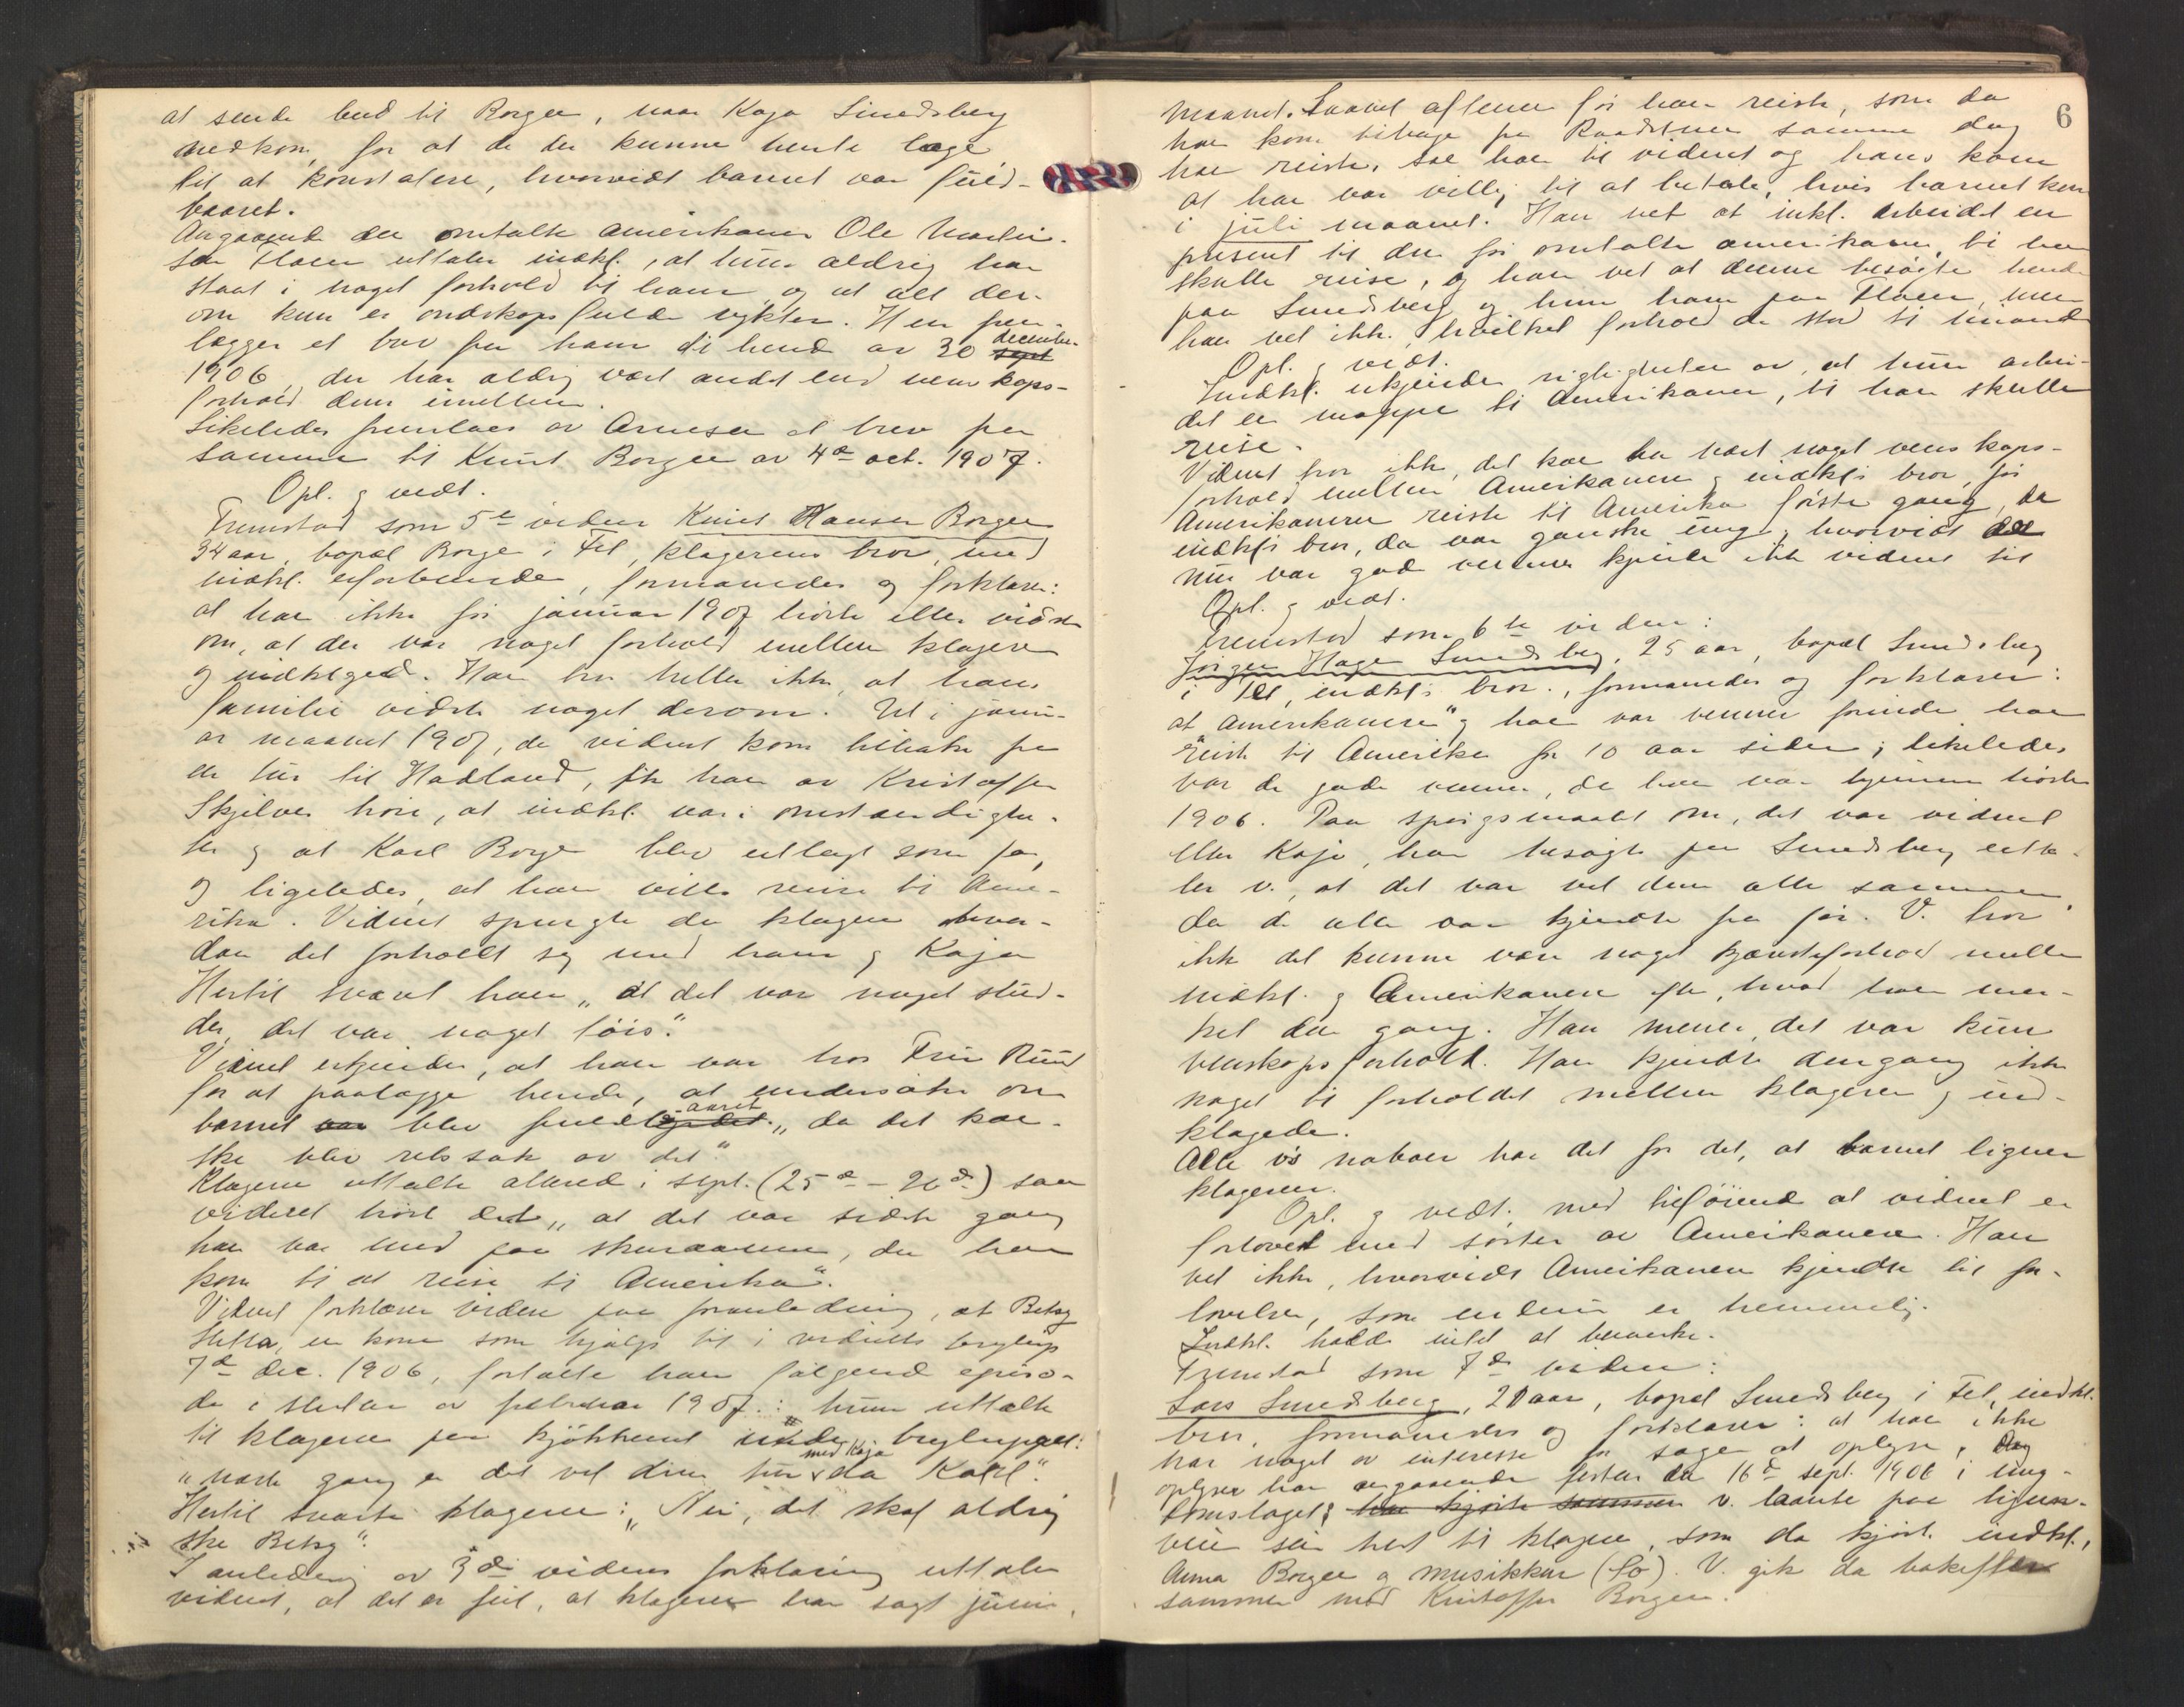 at sende bud til Borgen, naar Kaja Smedsberg
nedkom, for at de der kunne hente læge
til at konstatere, hvorvidt barnet var fuld-
baaret.
Angaaende den omtalte amerikaner Ole Martin-
sen Floen uttaler indkl., at hun aldrig har
staat i noget forhold til ham og at alt der-
om kun er ondskapsfulde rykter. Hun frem-
lægger et brev fra ham til hende av 30 december
1906, der har aldrig vært andet end venskaps-
forhold dem imellem.
Likeledes fremlaes av Arnesen et brev fra
samme til Knut Borgen av 4de oct. 1907.
Opl. g vedt.
Fremstod som 5te vidne Knut Hansen Borgen
34 aar, bopæl Borge i Fet, klagerens bror, med
indkl. uforbundet, formanedes og forklarer:
at han ikke før januar 1907 hørte eller vidste
om, at der var noget forhold mellem klageren
og indklagede. Han tror heller ikke, at hans
familie vidste noget derom. Ut i janu-
ar maaned 1907, da vidnet kom tilbake fra
en tur til Hadland, fik han av Kristoffer
Skjelver høre, at indkl. var i omstændighe-
ter og at Karl Borge blev utlagt som far,
og ligeledes, at han vilde reise til Ame-
rika. Vidnet spurgte da klageren hvor-
dan det forholdt sig med ham og Kaja
Hertil svaret han „at det var noget slud-
der, det var noget tøis".
Vidnet erkjender, at han var hos Fru Ruud
for at paalægge hende, at undersøke om
barnet var blev fuldbaaret „da det kan-
ske blev retssak av det".
Klageren uttalte allered i sept. (25de – 26de) saa
vidnet hørte det „at det var sidste gang
han var med paa skuraannen, da han
kom til at reise til Amerika".
Vidnet forklarer videre paa foranledning, at Betsy
Stella, en kone som hjalp til i vidnets bryllup
7de dec. 1906, fortalte ham følgende episo-
de i slutten av februar 1907: hun uttalte
til klageren paa kjøkkenet under bryllupet:
„næste gang er det vel din tur med Kaja da Karl".
Hertil svarte klageren: „Nei, det skal aldrig
ske Betsy".
I anledning av 3die vidnes forklaring uttaler
vidnet, at det er feil, at klageren har sagt juni
6
maaned. Saavel aftenen før han reiste, som da
han kom tilbage fra Raadstuen samme dag
han reiste, sa han til vidnet og hans kone
at han var villig til at betale, hvis barnet kom
i juli maaned. Han vet at indkl. arbeidet en
present til den før omtalte amerikaner, til han
skulle reise, og han vet at denne besøgte hende
paa Smedsberg og hun ham paa Floen, men
han vet ikke, hvilket forhold de stod til hinanden
Opl. g vedt.
Indkl. erkjender rigtigheten av, at hun arbei-
det en mappe til Amerikaner, til han skulle
reise.
Vidnet tror ikke, det kan ha vært noget venskaps-
forhold mellem Amerikaneren og indkl's bror, før
Amerikaneren reiste til Amerika første gang, da
indkl's bror, da var ganske ung, hvorvidt de
nu var gode venner kjender ikke vidnet til
Opl. g vedt.
Fremstod som 6te vidne:
Jørgen Hagen Smedsberg, 25 aar, bopæl Smedsberg
i Fet, indkl's bror, formanedes og forklarer:
at „Amerikaneren" og han var venner forinden han
reiste til Amerika for 10 aar siden; likeledes
var de gode venner, da han var hjemme høsten
1906. Paa spørgsmaalet om, det var vidnet
eller Kaja, han besøgte paa Smedsberg utta-
ler v., at det var vel dem alle sammen
da de alle var kjendte fra før. V. tror
ikke det kunne være noget kjæresteforhold mellem
indkl. og Amerikaneren efter, hvad han mer-
ket den gang. Han mener, det var kun
venskapsforhold. Han kjendte dengang ikke
noget til forholdet mellem klageren og ind-
klagede.
Alle v's naboer har det for det, at barnet ligner
klageren.
Opl. g vedt. med tilføiend at vidnet er
forlovet med søster av Amerikaneren. Han
vet ikke, hvorvidt Amerikaneren kjendte til for-
lovelsen, som endnu er hemmelig.
Indkl. hadde intet at bemerke.
Fremstod som 7de vidne:
Lars Smedsberg, 21 aar, bopæl Smedsberg i Fet, indkl.
bror, formanedes og forklarer: at han ikke
har noget av interesse for sagen at oplyse,
oplyser han angaaende festen den 16de sept. 1906 i ung-
domslaget: han kjørte sammen v. laante paa hjem-
veien sin hest til klageren, som da kjørte indkl.,
Anna Borgen og musikken (to). V. gik da bakefter
sammen med Kristoffer Borgen.